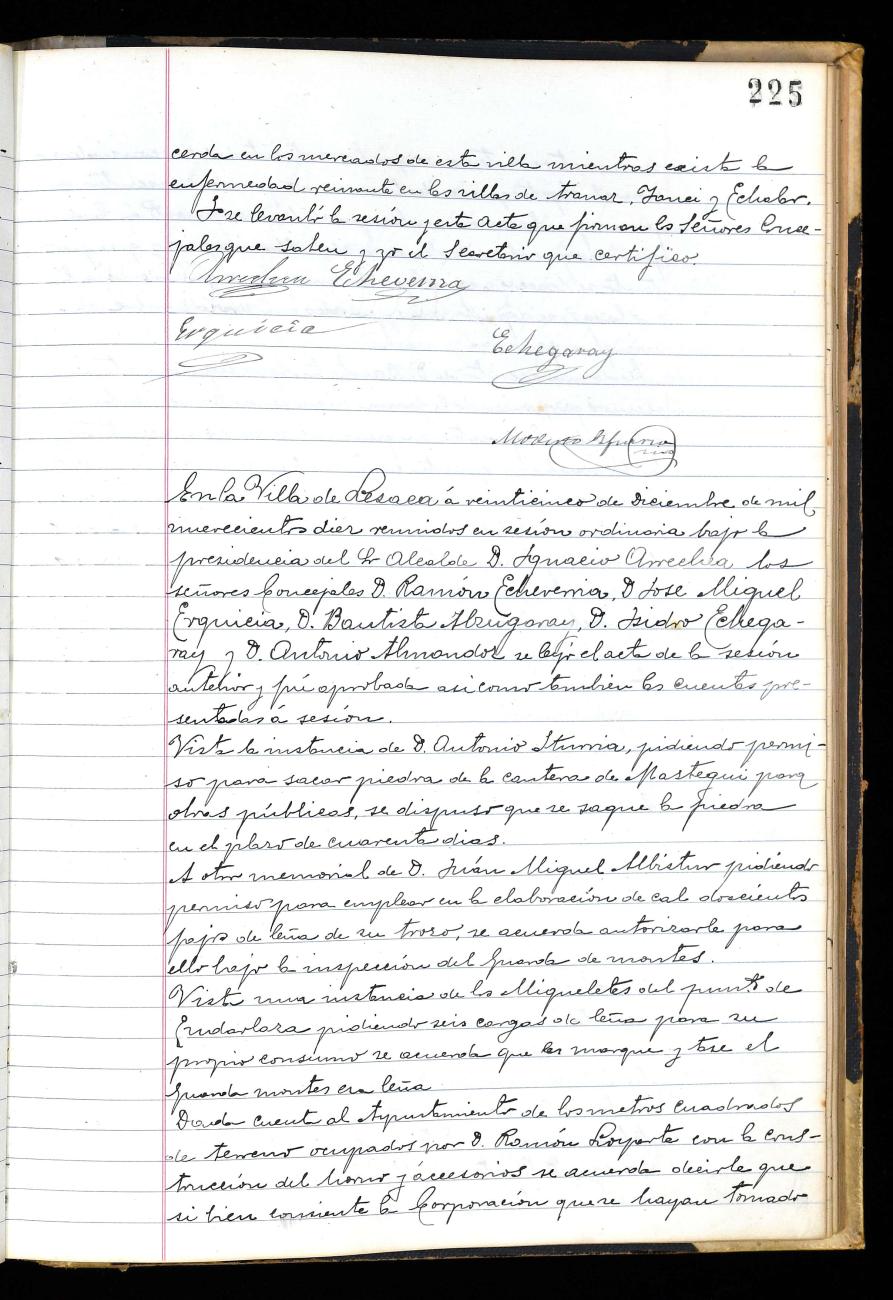 225
cerda en los mercados de esta villa mientras exista la
enfermedad reinante en las villas de Aranaz, Yanci y Echalar.
Y se levantó la sesión y esta acta que firman los Señores Conce-
jales que saben y yo el Secretario que certifico.
Arrechea Echeverria
Erquicia
Echegaray
Modesto
En la Villa de Lesaca á veinticinco de diciembre de mil
nuevecientos diez reunidos en sesión ordinaria bajo la
presidencia del Sr Alcalde D. Ignacio Arrechea los
señores Concejales D. Ramón Echeverria, D José Miguel
Erquicia, D. Bautista Alzugaray, D. Isidro Echega-
ray y D. Antonio Almandoz se leyó el acta de la sesión
anterior y fué aprobada asi como tambien las cuentas pre-
sentadas á sesión.
Vista la instancia de D. Antonio Iturria, pidiendo permi-
so para sacar piedra de la cantera de Mastegui para
obras públicas, se dispuso que se saque la piedra
en el plazo de cuarenta dias.
A otro memorial de D. Juán Miguel Albistur pidiendo
permiso para emplear en la elaboración de cal doscientos
fajos de leña de su trozo, se acuerda autorizarle para
ello bajo la inspección del Guarda de montes.
Vista una instancia de los Migueletes del punto de
Endarlaza pidiendo seis cargas de leña para su
propio consumo se acuerda que les marque y tase el
Guarda montes esa leña
Dada cuenta al Ayuntamiento de los metros cuadrados
de terreno ocupados por D. Ramón Loyarte con la cons-
trucción del horno y accesorios se acuerda decirle que
si bien consiente la Corporación que se hayan tomado